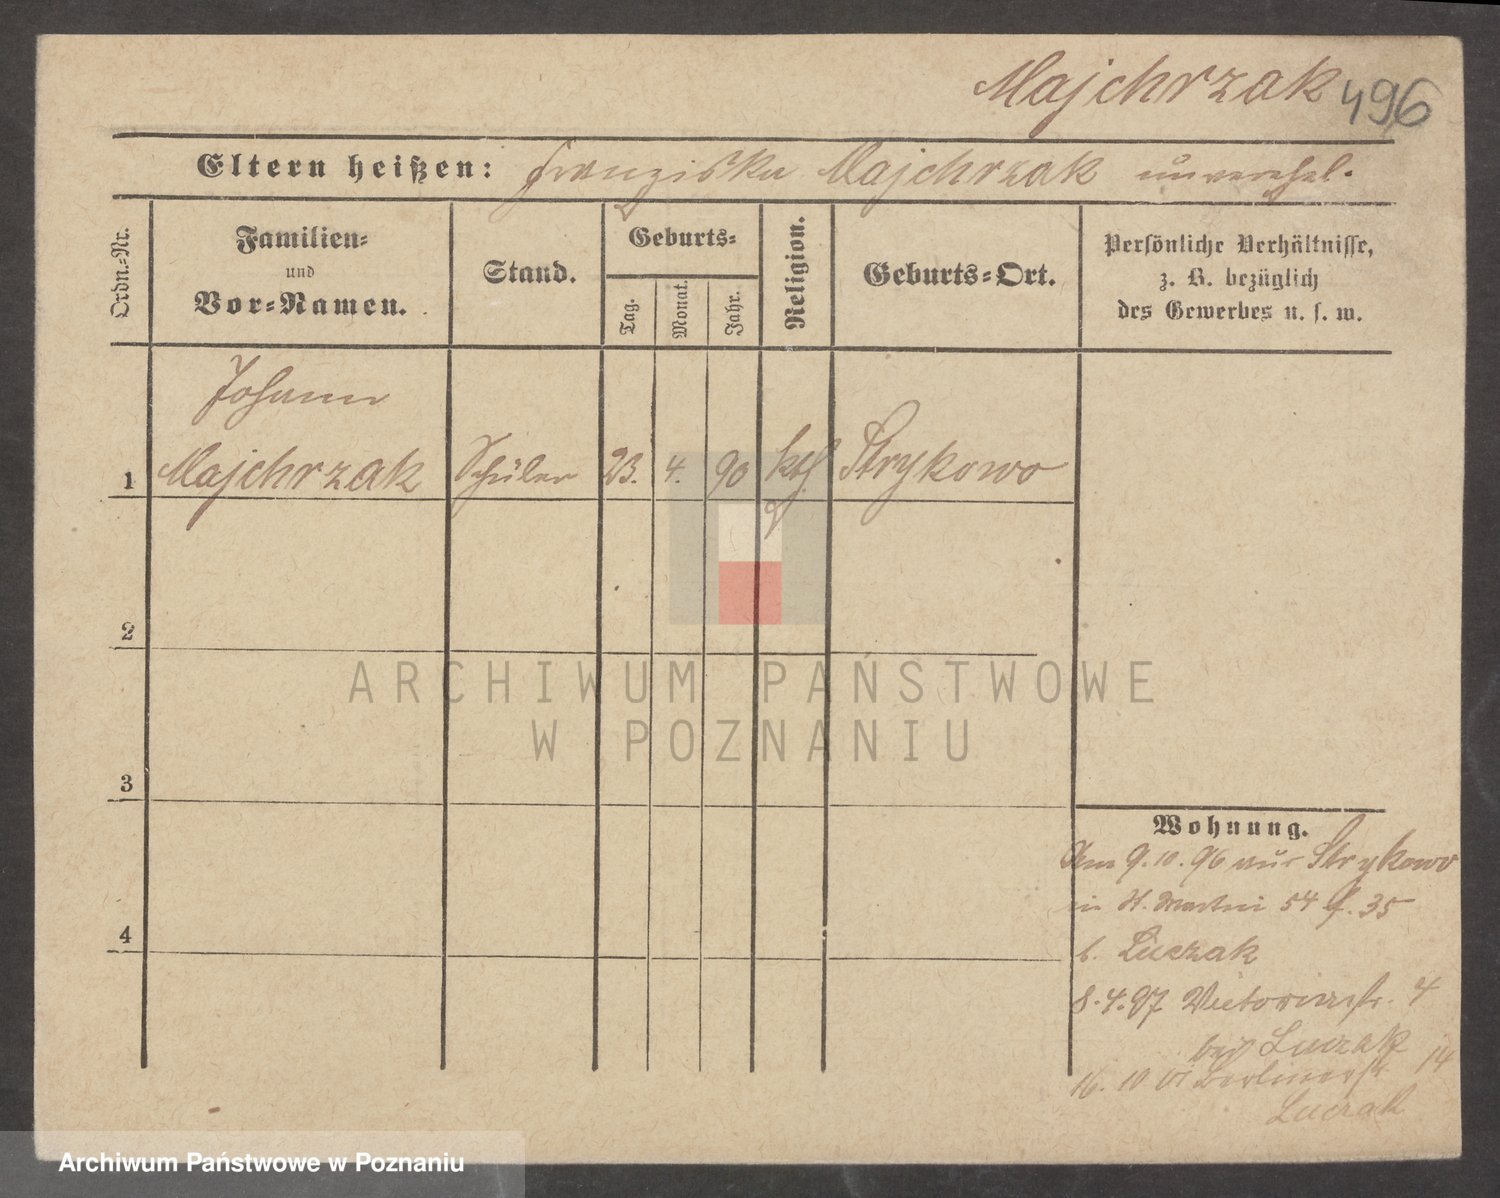 Majchrzak 496
Eltern heißen: Franziska Majchrzak unverehel.
Ordn.=Nr.
Familien=
und
Vor=Namen.
Stand.
Geburts=
Tag.
Monat.
Jahr.
Religion.
Geburts=Ort.
Persönliche Verhältnisse,
z. B. bezüglich
des Gewerbes u. s. w.
Johann
1 Majchrzak Schüler 23. 4. 90 kth Strykowo
2
3
4
Wohnung.
Am 9.10.96 aus Strykowo
in St. Martin 54 35
b. Luczak
8.4.97 Victoriastr. 4
bei Luczak
16. 10 Berlinerstr 14
Luczak
ARCHIWUM PAŃSTWOWE
W POZNANIU
Archiwum Państwowe w Poznaniu